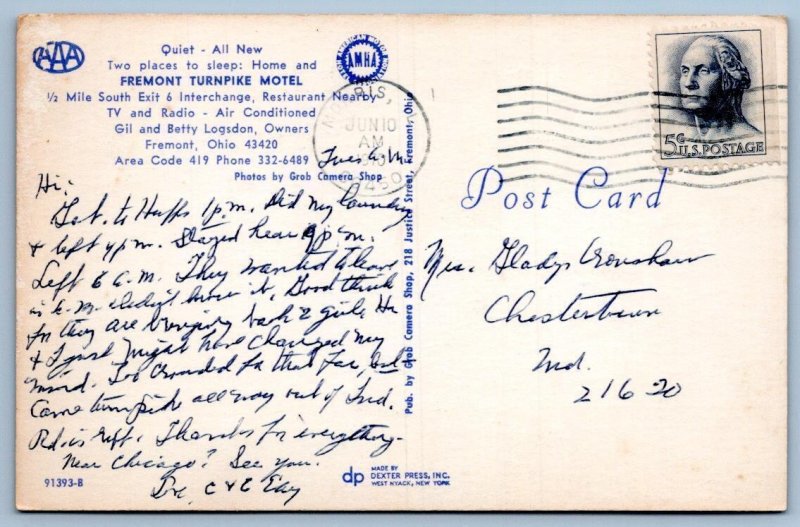 AAA
Quiet - All New
Two places to sleep: Home and
FREMONT TURNPIKE MOTEL
½ Mile South Exit 6 Interchange, Restaurant Nearby
TV and Radio - Air Conditioned
Gil and Betty Logsdon, Owners
Fremont, Ohio 43420
Area Code 419 Phone 332-6489
Photos by Grob Camera Shop
AMHA
JUN 10
AM
5¢ U.S. POSTAGE
Post Card
Tues a.m.
Hi:
Got to Huffs 1 p.m. Did my laundry
& left 4 p.m. Stayed hear 9 p.m.
Left 6 a.m. They wanted to leave
is a.m. didn't know it. Good think
for they are bringing back 2 girls. He
& I just might have changed my
mind. Too crowded for that far, but
Came turnpike all way out of Ind.
Rd. is rift. Thanks for everything-
Near Chicago? See you.
C & E
Mrs. Gladys Cronshaw
Chestertown
Md.
21620
Pub. by Grob Camera Shop, 218 Justice Street, Fremont, Ohio
91393-B
dp
MADE BY
DEXTER PRESS, INC.
WEST NYACK, NEW YORK